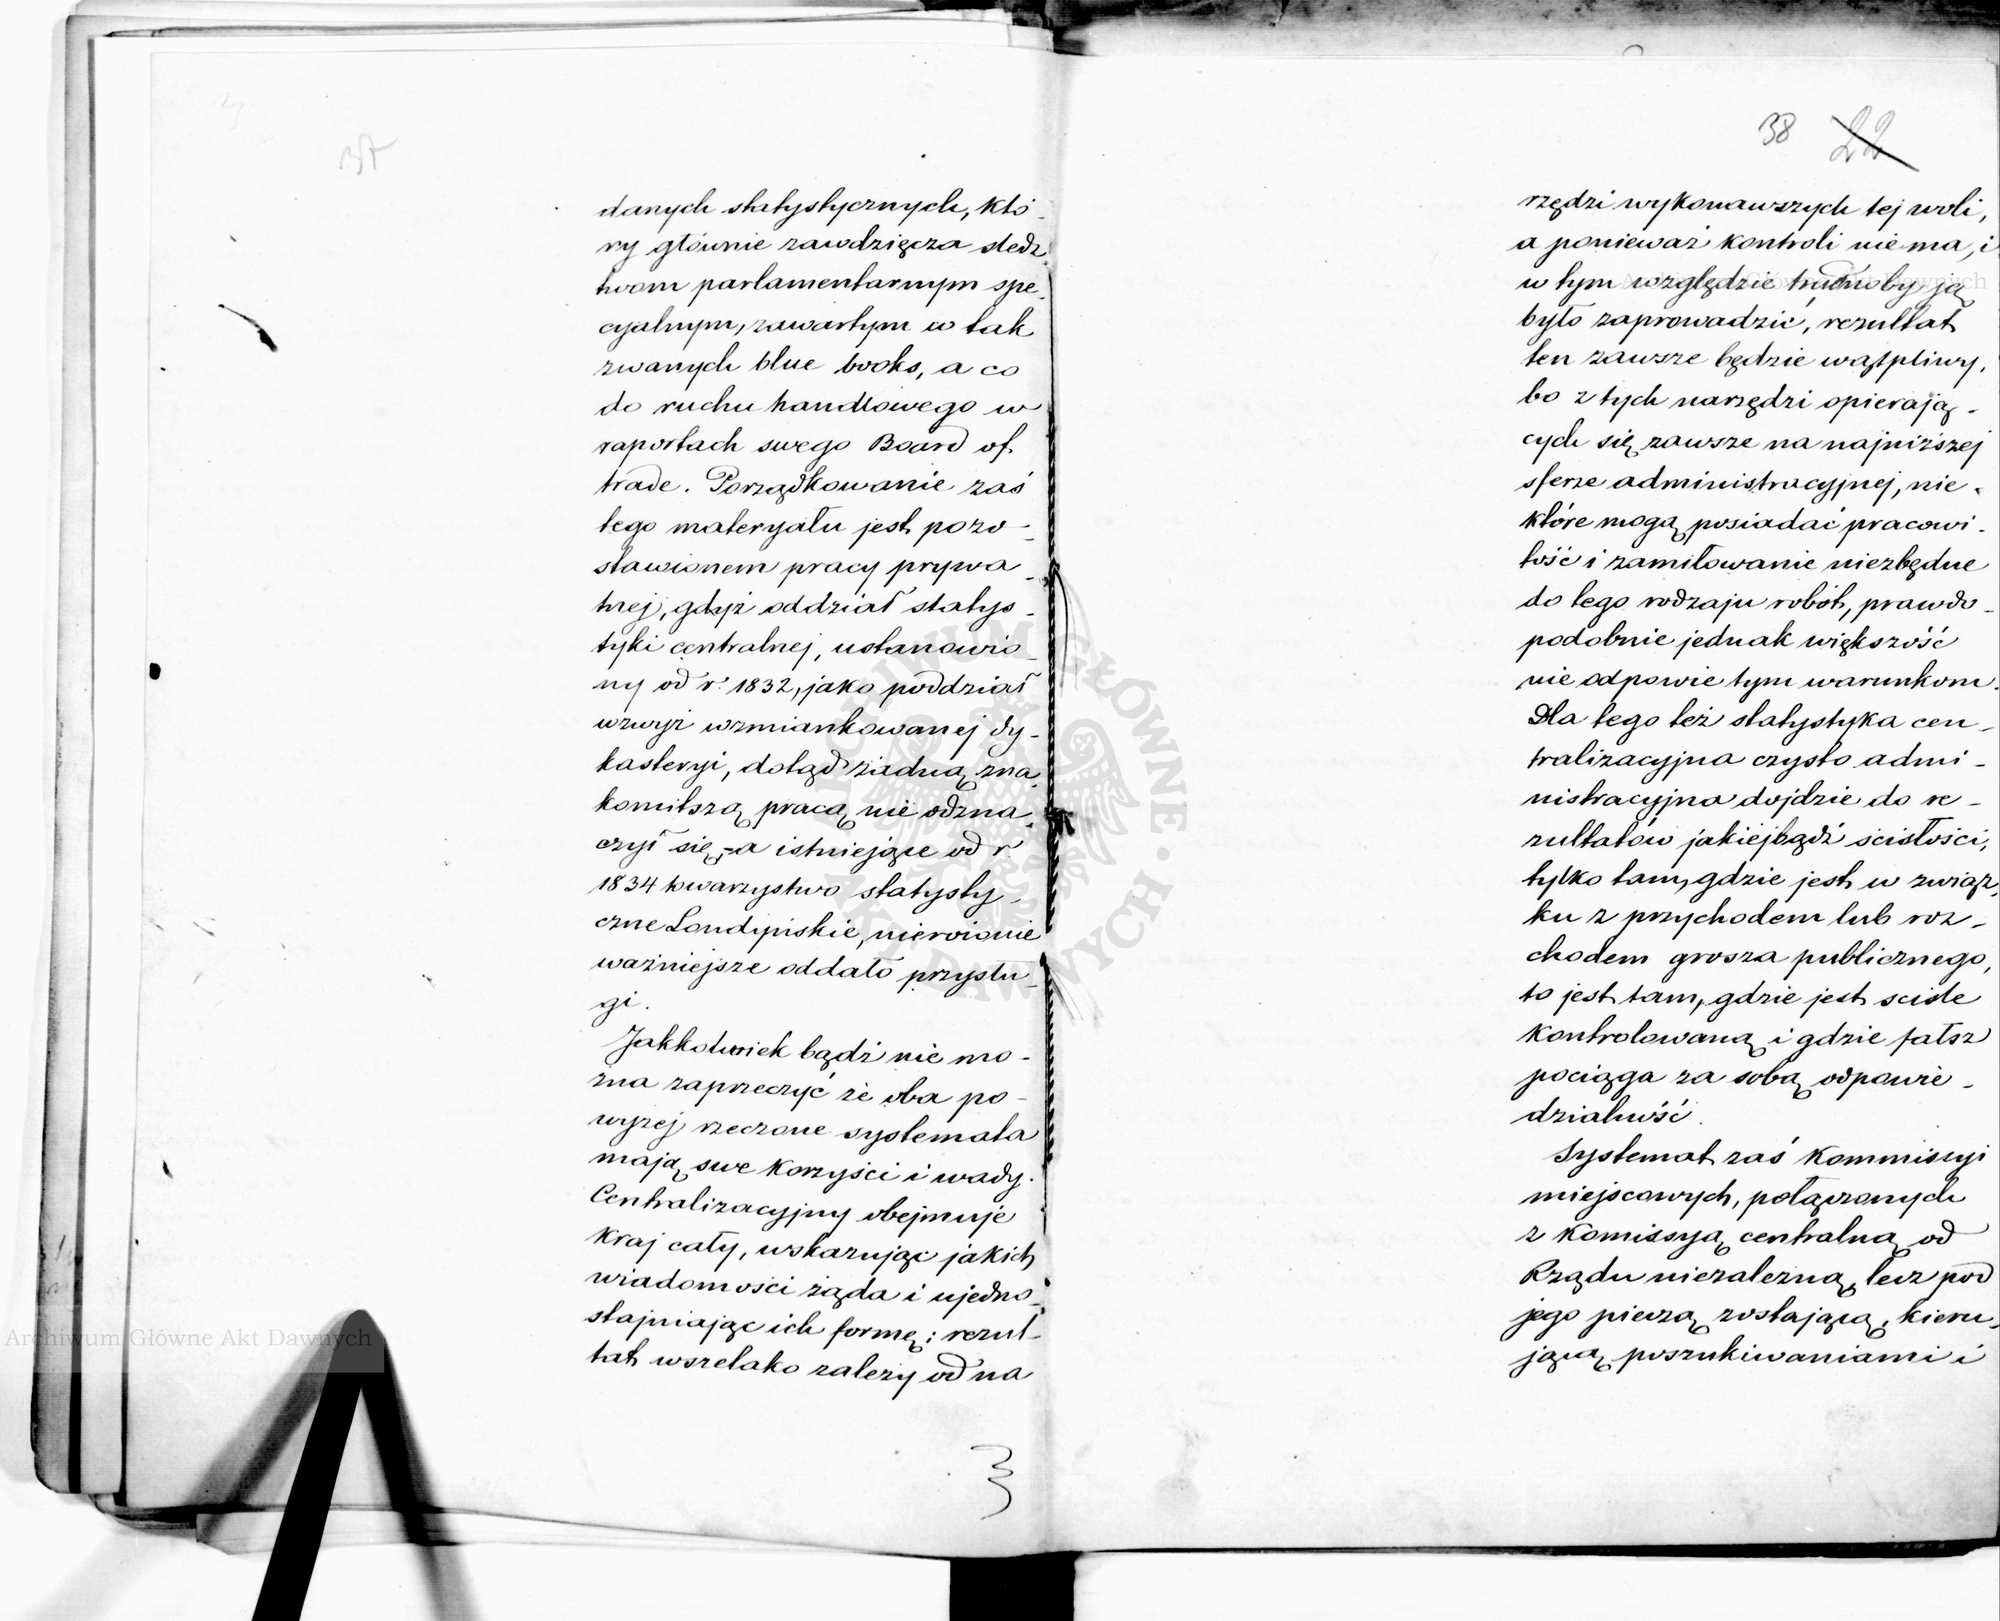 danych statystycznych, któ-
ry głównie zawdzięcza śledz-
twom parlamentarnym spe-
cyalnym, zawartym w tak
zwanych blue books, a co
do ruchu handlowego w
raportach swego Board of
trade. Porządkowanie zaś
tego materyału jest pozo-
stawionem pracy prywa-
tnej, gdyż oddział statys-
tyki centralnej, ustanowio-
ny od r. 1832, jako poddział
wzwyż wzmiankowanej dy-
kasteryi, dotąd żadną zna-
komitszą pracą nie odzna-
czył się,-a istniejące od r.
1834 towarzystwo statysty-
czne Londyńskie, nierównie
ważniejsze oddało przysłu-
gi.
Jakkolwiek bądź nie mo-
żna zaprzeczyć że oba po-
wyżej rzeczone systemata
mają swe korzyści i wady.
Centralizacyjny obejmuje
kraj cały, wskazując jakich
wiadomości żąda i ujedno-
stajniając ich formę; rezul-
tat wszelako zależy od na
38 22
rzędzi wykonawszych tej woli,
a ponieważ kontroli nie ma, i
w tym względzie trudno by ją
było zaprowadzić, rezultat
ten zawsze będzie wątpliwy,
bo z tych narzędzi opierają-
cych się zawsze na najniższej
sferze administracyjnej, nie-
które mogą posiadać pracowi-
tość i zamiłowanie niezbędne
do tego rodzaju robót, prawdo-
podobnie jednak większość
nie odpowie tym warunkom.
Dla tego też statystyka cen-
tralizacyjna czysto admi-
nistracyjna dojdzie do re-
zultatów jakiejbądź ścisłości,
tylko tam, gdzie jest w związ-
ku z przychodem lub roz-
chodem grosza publicznego,
to jest tam, gdzie jest scisle
kontrolowaną i gdzie fałsz
pociąga za sobą odpowie-
dzialność.
Systemat zaś Kommissyi
miejscowych, połączonych
z Komissyą centralną od
Rządu niezależną, lecz pod
jego pieczą zostającą, kieru-
jącą poszukiwaniami i
Archiwum Główne Akt Dawnych
Archiwum Główne Akt Dawnych
ARCHIWUM GŁÓWNE AKT DAWNYCH